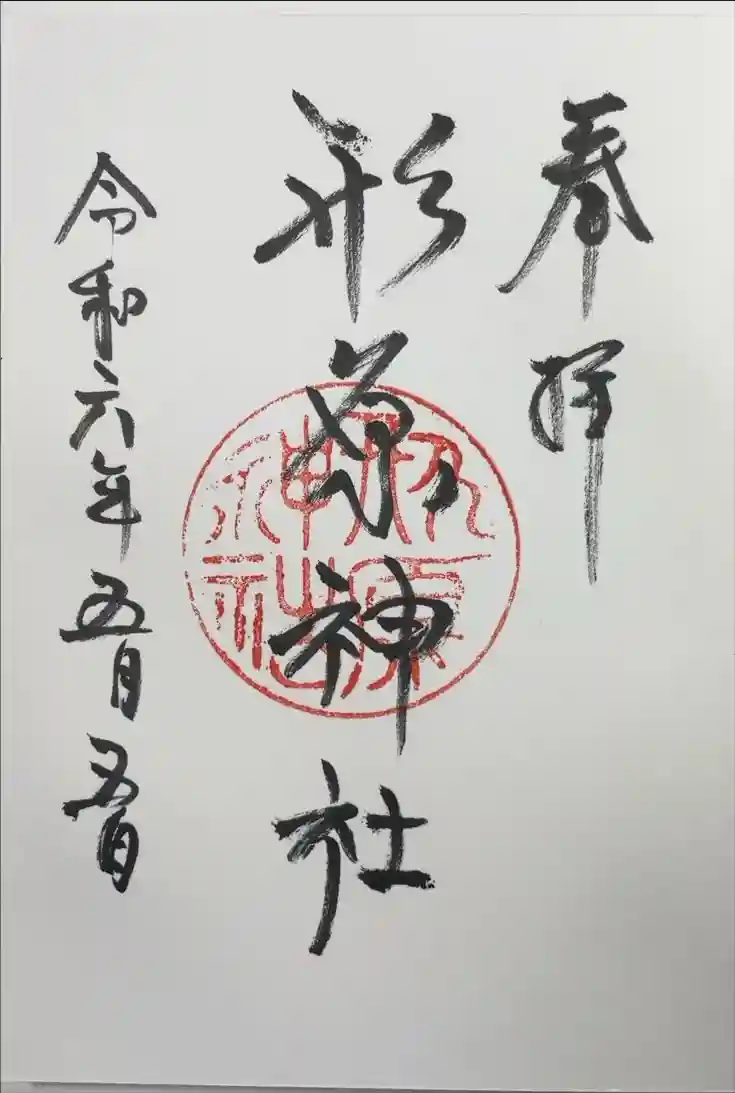 奉拝
形原神社
形原
神社
令和六年五月五日